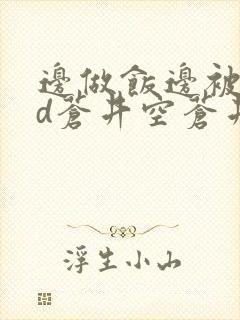 邊做飯邊被
d蒼井空蒼井
浮生小山